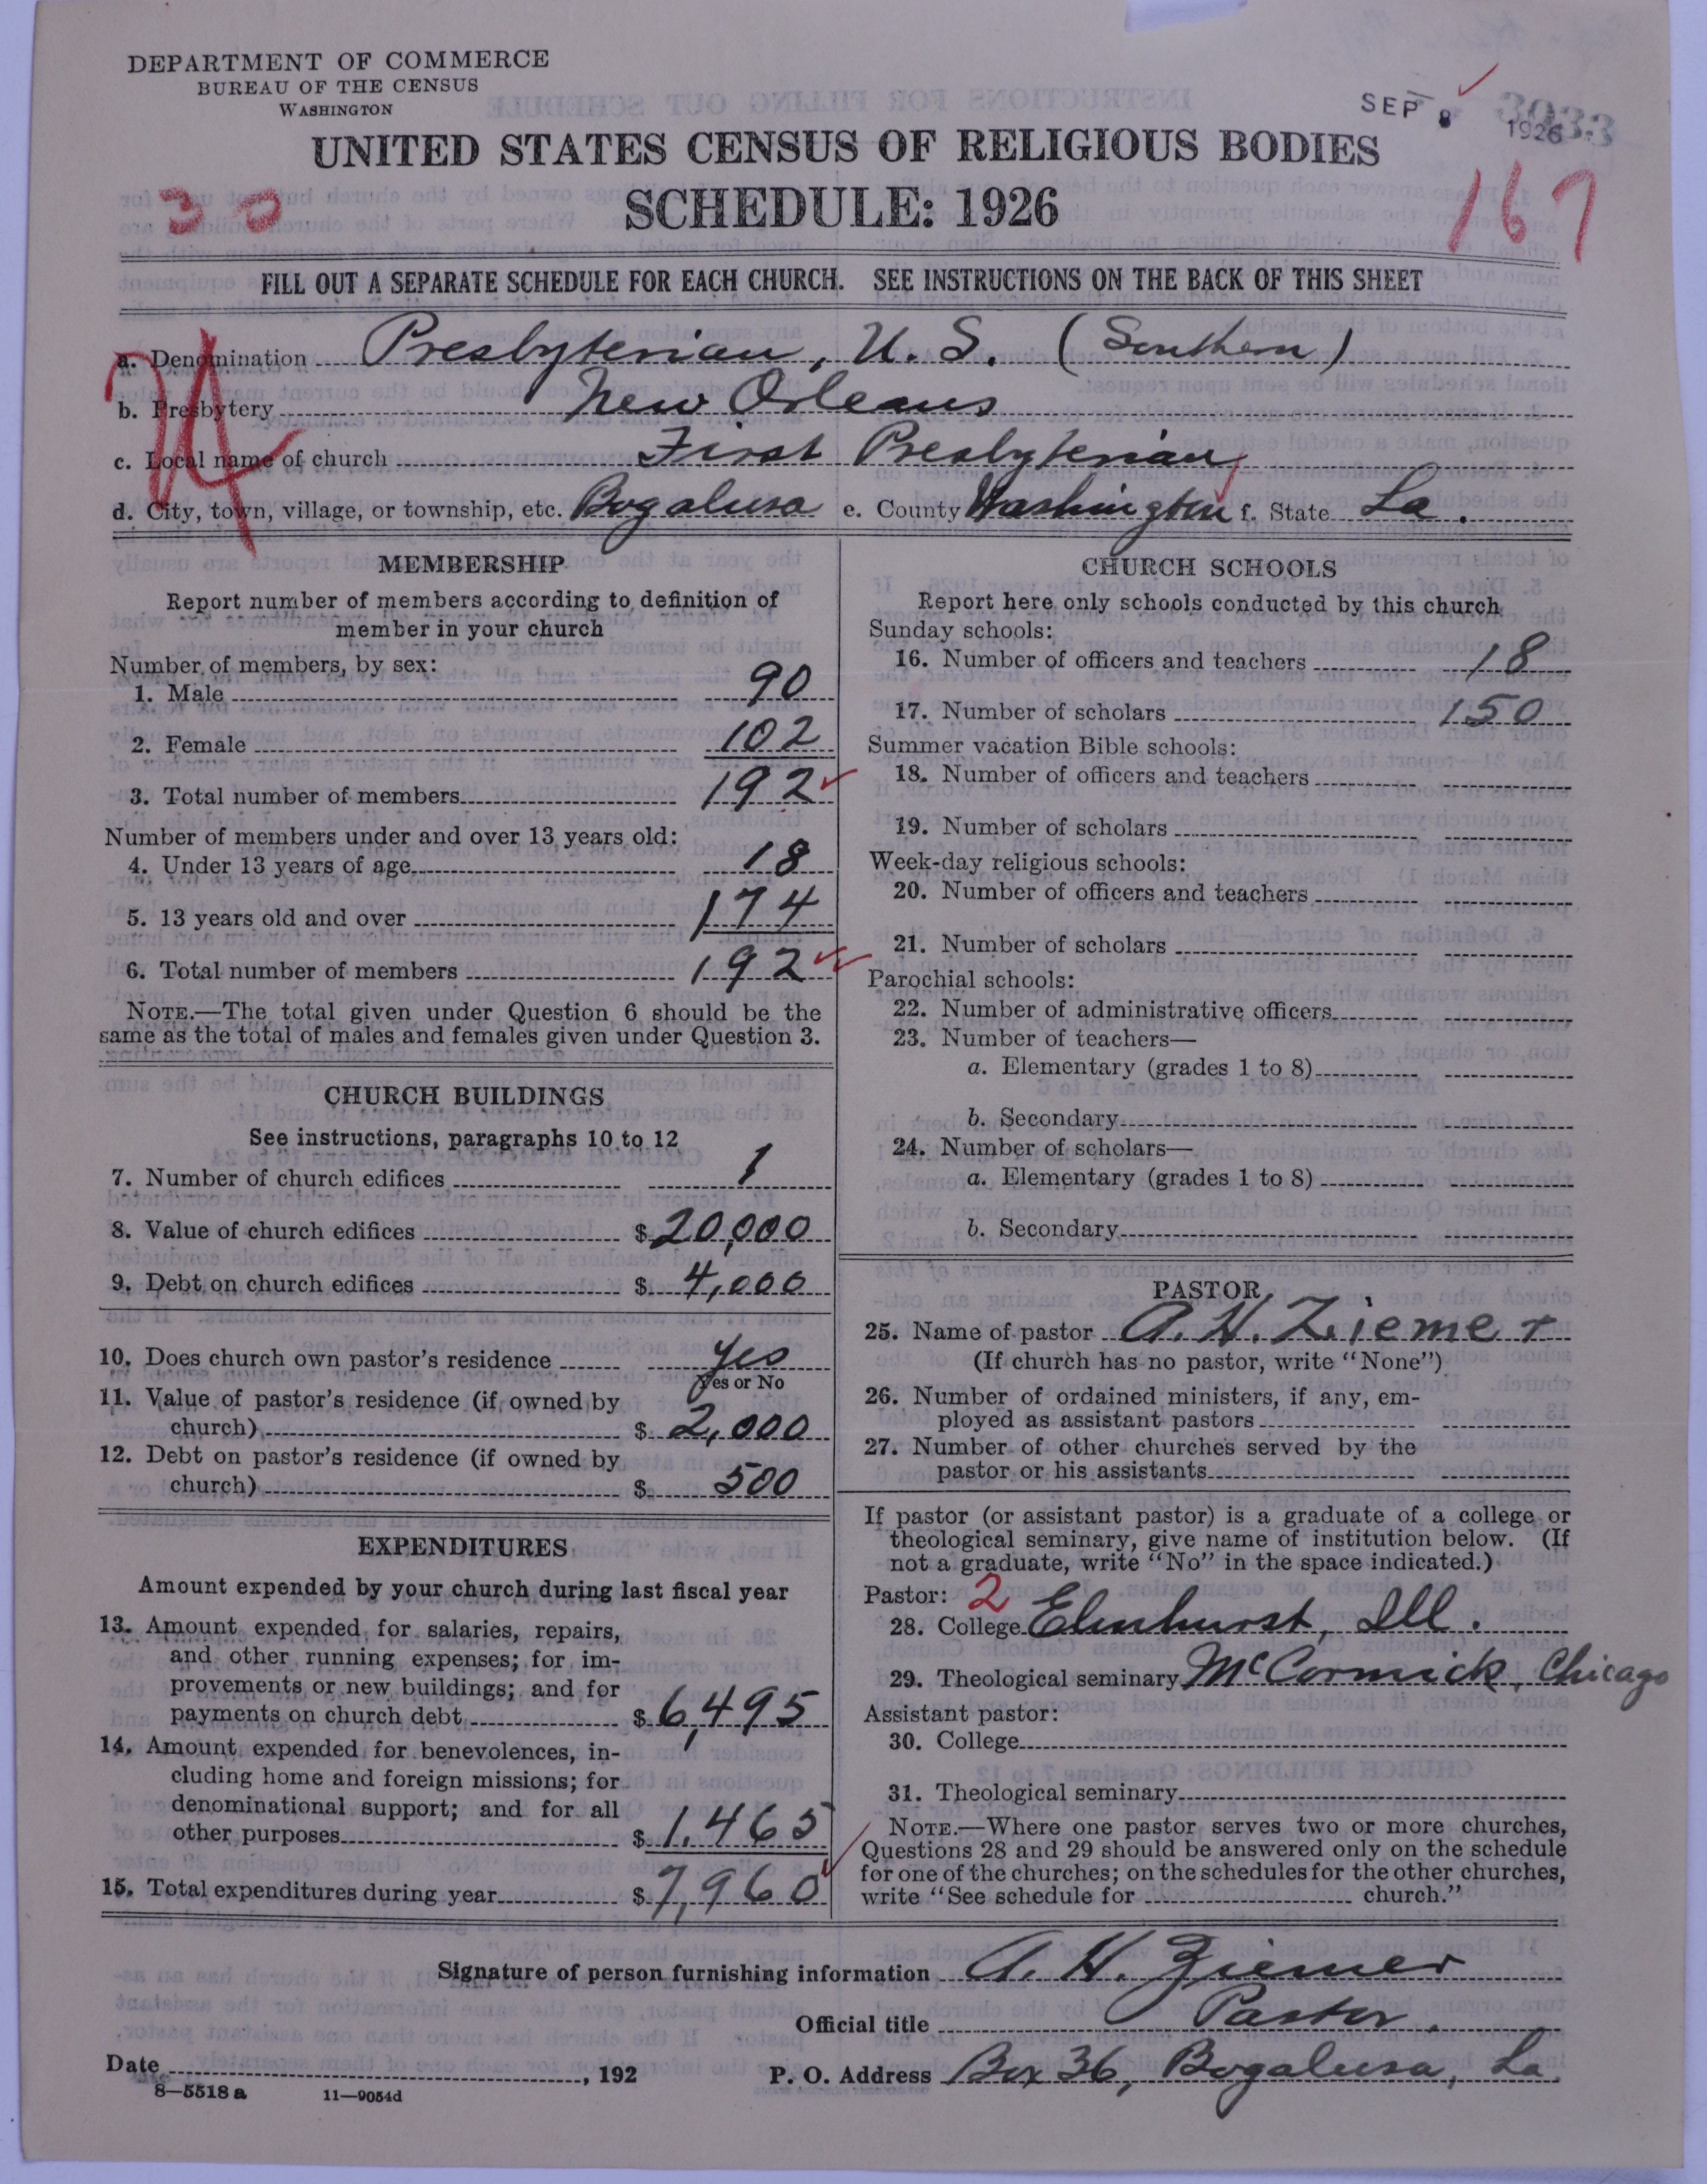 DEPARTMENT OF COMMERCE
BUREAU OF THE CENSUS
WASHINGTON
SEP 8 1926
3033
UNITED STATES CENSUS OF RELIGIOUS BODIES
SCHEDULE: 1926
30
167
FILL OUT A SEPARATE SCHEDULE FOR EACH CHURCH. SEE INSTRUCTIONS ON THE BACK OF THIS SHEET
a. Denomination Presbyterian, U. S. (Southern)
b. Presbytery New Orleans
c. Local name of church First Presbyterian
d. City, town, village, or township, etc. Bogalusa e. County Washington f. State La.
MEMBERSHIP
Report number of members according to definition of
member in your church
Number of members, by sex:
1. Male 90
2. Female 102
3. Total number of members 192
Number of members under and over 13 years old:
4. Under 13 years of age 18
5. 13 years old and over 174
6. Total number of members 192
NOTE.—The total given under Question 6 should be the
same as the total of males and females given under Question 3.
CHURCH BUILDINGS
See instructions, paragraphs 10 to 12
7. Number of church edifices 1
8. Value of church edifices $20,000
9. Debt on church edifices $4,000
10. Does church own pastor's residence yes
Yes or No
11. Value of pastor's residence (if owned by
church) $2,000
12. Debt on pastor's residence (if owned by
church) $500
EXPENDITURES
Amount expended by your church during last fiscal year
13. Amount expended for salaries, repairs,
and other running expenses; for im-
provements or new buildings; and for
payments on church debt $6,495
14. Amount expended for benevolences, in-
cluding home and foreign missions; for
denominational support; and for all
other purposes $1,465
15. Total expenditures during year $7,960
CHURCH SCHOOLS
Report here only schools conducted by this church
Sunday schools:
16. Number of officers and teachers 18
17. Number of scholars 150
Summer vacation Bible schools:
18. Number of officers and teachers
19. Number of scholars
Week-day religious schools:
20. Number of officers and teachers
21. Number of scholars
Parochial schools:
22. Number of administrative officers
23. Number of teachers—
a. Elementary (grades 1 to 8)
b. Secondary
24. Number of scholars—
a. Elementary (grades 1 to 8)
b. Secondary
PASTOR
25. Name of pastor A. H. Ziemer
(If church has no pastor, write "None")
26. Number of ordained ministers, if any, em-
ployed as assistant pastors
27. Number of other churches served by the
pastor or his assistants
If pastor (or assistant pastor) is a graduate of a college or
theological seminary, give name of institution below. (If
not a graduate, write "No" in the space indicated.)
Pastor: 2
28. College Elmhurst, Ill.
29. Theological seminary McCormick, Chicago
Assistant pastor:
30. College
31. Theological seminary
NOTE.—Where one pastor serves two or more churches,
Questions 28 and 29 should be answered only on the schedule
for one of the churches; on the schedules for the other churches,
write "See schedule for church."
Signature of person furnishing information A. H. Ziemer
Official title Pastor.
Date , 192
P. O. Address Box 36, Bogalusa, La.
8—5518 a 11—9054d